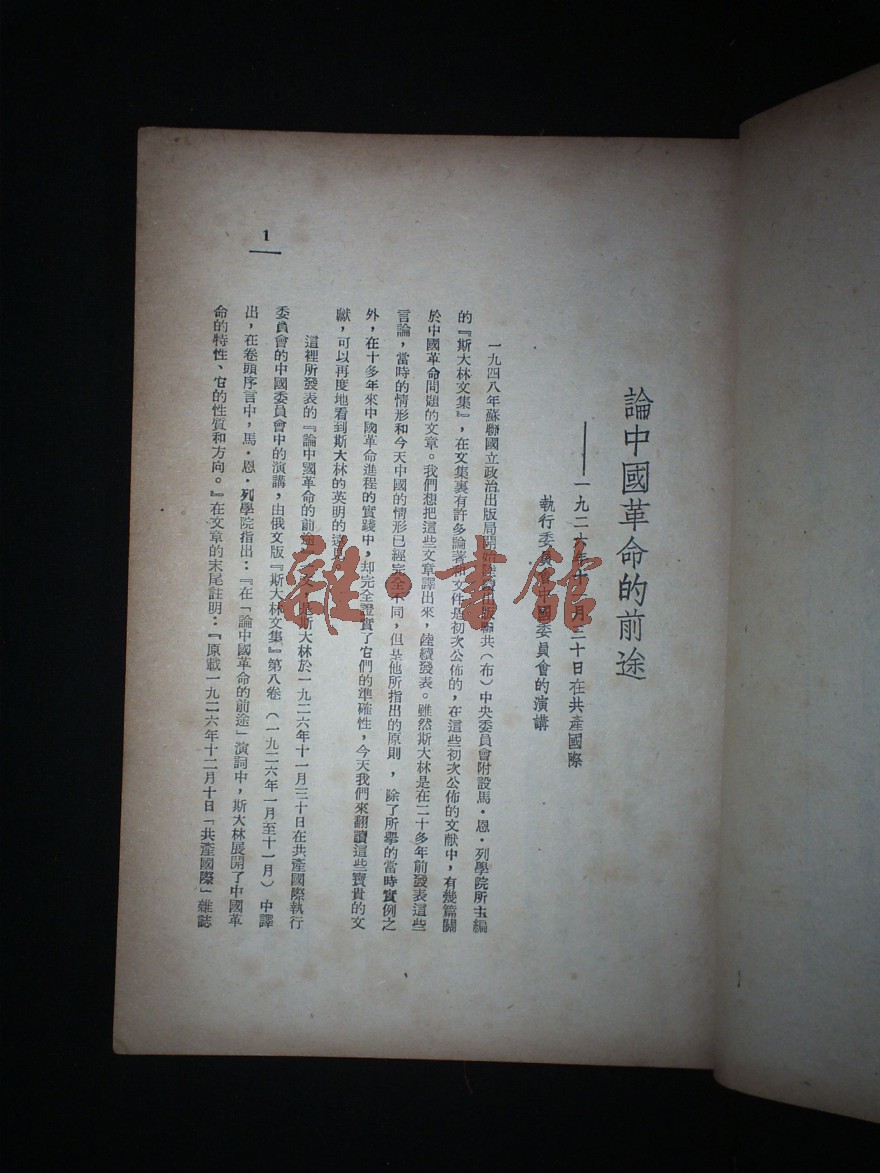 論中國革命的前途
——一九二六年十一月三十日在共產國際
執行委員會中國委員會的演講
一九四八年蘇聯國立政治出版局開始 出版聯共（布）中央委員會附設馬·恩·列學院所主編
的『斯大林文集』，在文集裏有許多論著和文件是初次公佈的，在這些初次公佈的文献中，有幾篇關
於中國革命問題的文章。我們想把這些文章譯出來，陸續發表。雖然斯大林是在二十多年前發表這些
言論，當時的情形和今天中國的情形已經完全不同，但是他所指出的原則，除了所舉的當時實例之
外，在十多年來中國革命進程的實踐中，却完全證實了它們的準確性，今天我們來翻讀這些寶貴的文
獻，可以再度地看到斯大林的英明的遠見。
這裡所發表的『論中國革命的前途』 是斯大林於一九二六年十一月三十日在共產國際執行
委員會的中國委員會中的演講，由俄文版『斯大林文集』第八卷（一九二六年一月至十一月）中譯
出，在卷頭序言中，馬·恩·列學院指出：『在「論中國革命的前途」演詞中，斯大林展開了中國革
命的特性、它的性質和方向。』在文章的末尾註明：『原載一九二六年十二月十日「共產國際」雜誌
1
雜·書館